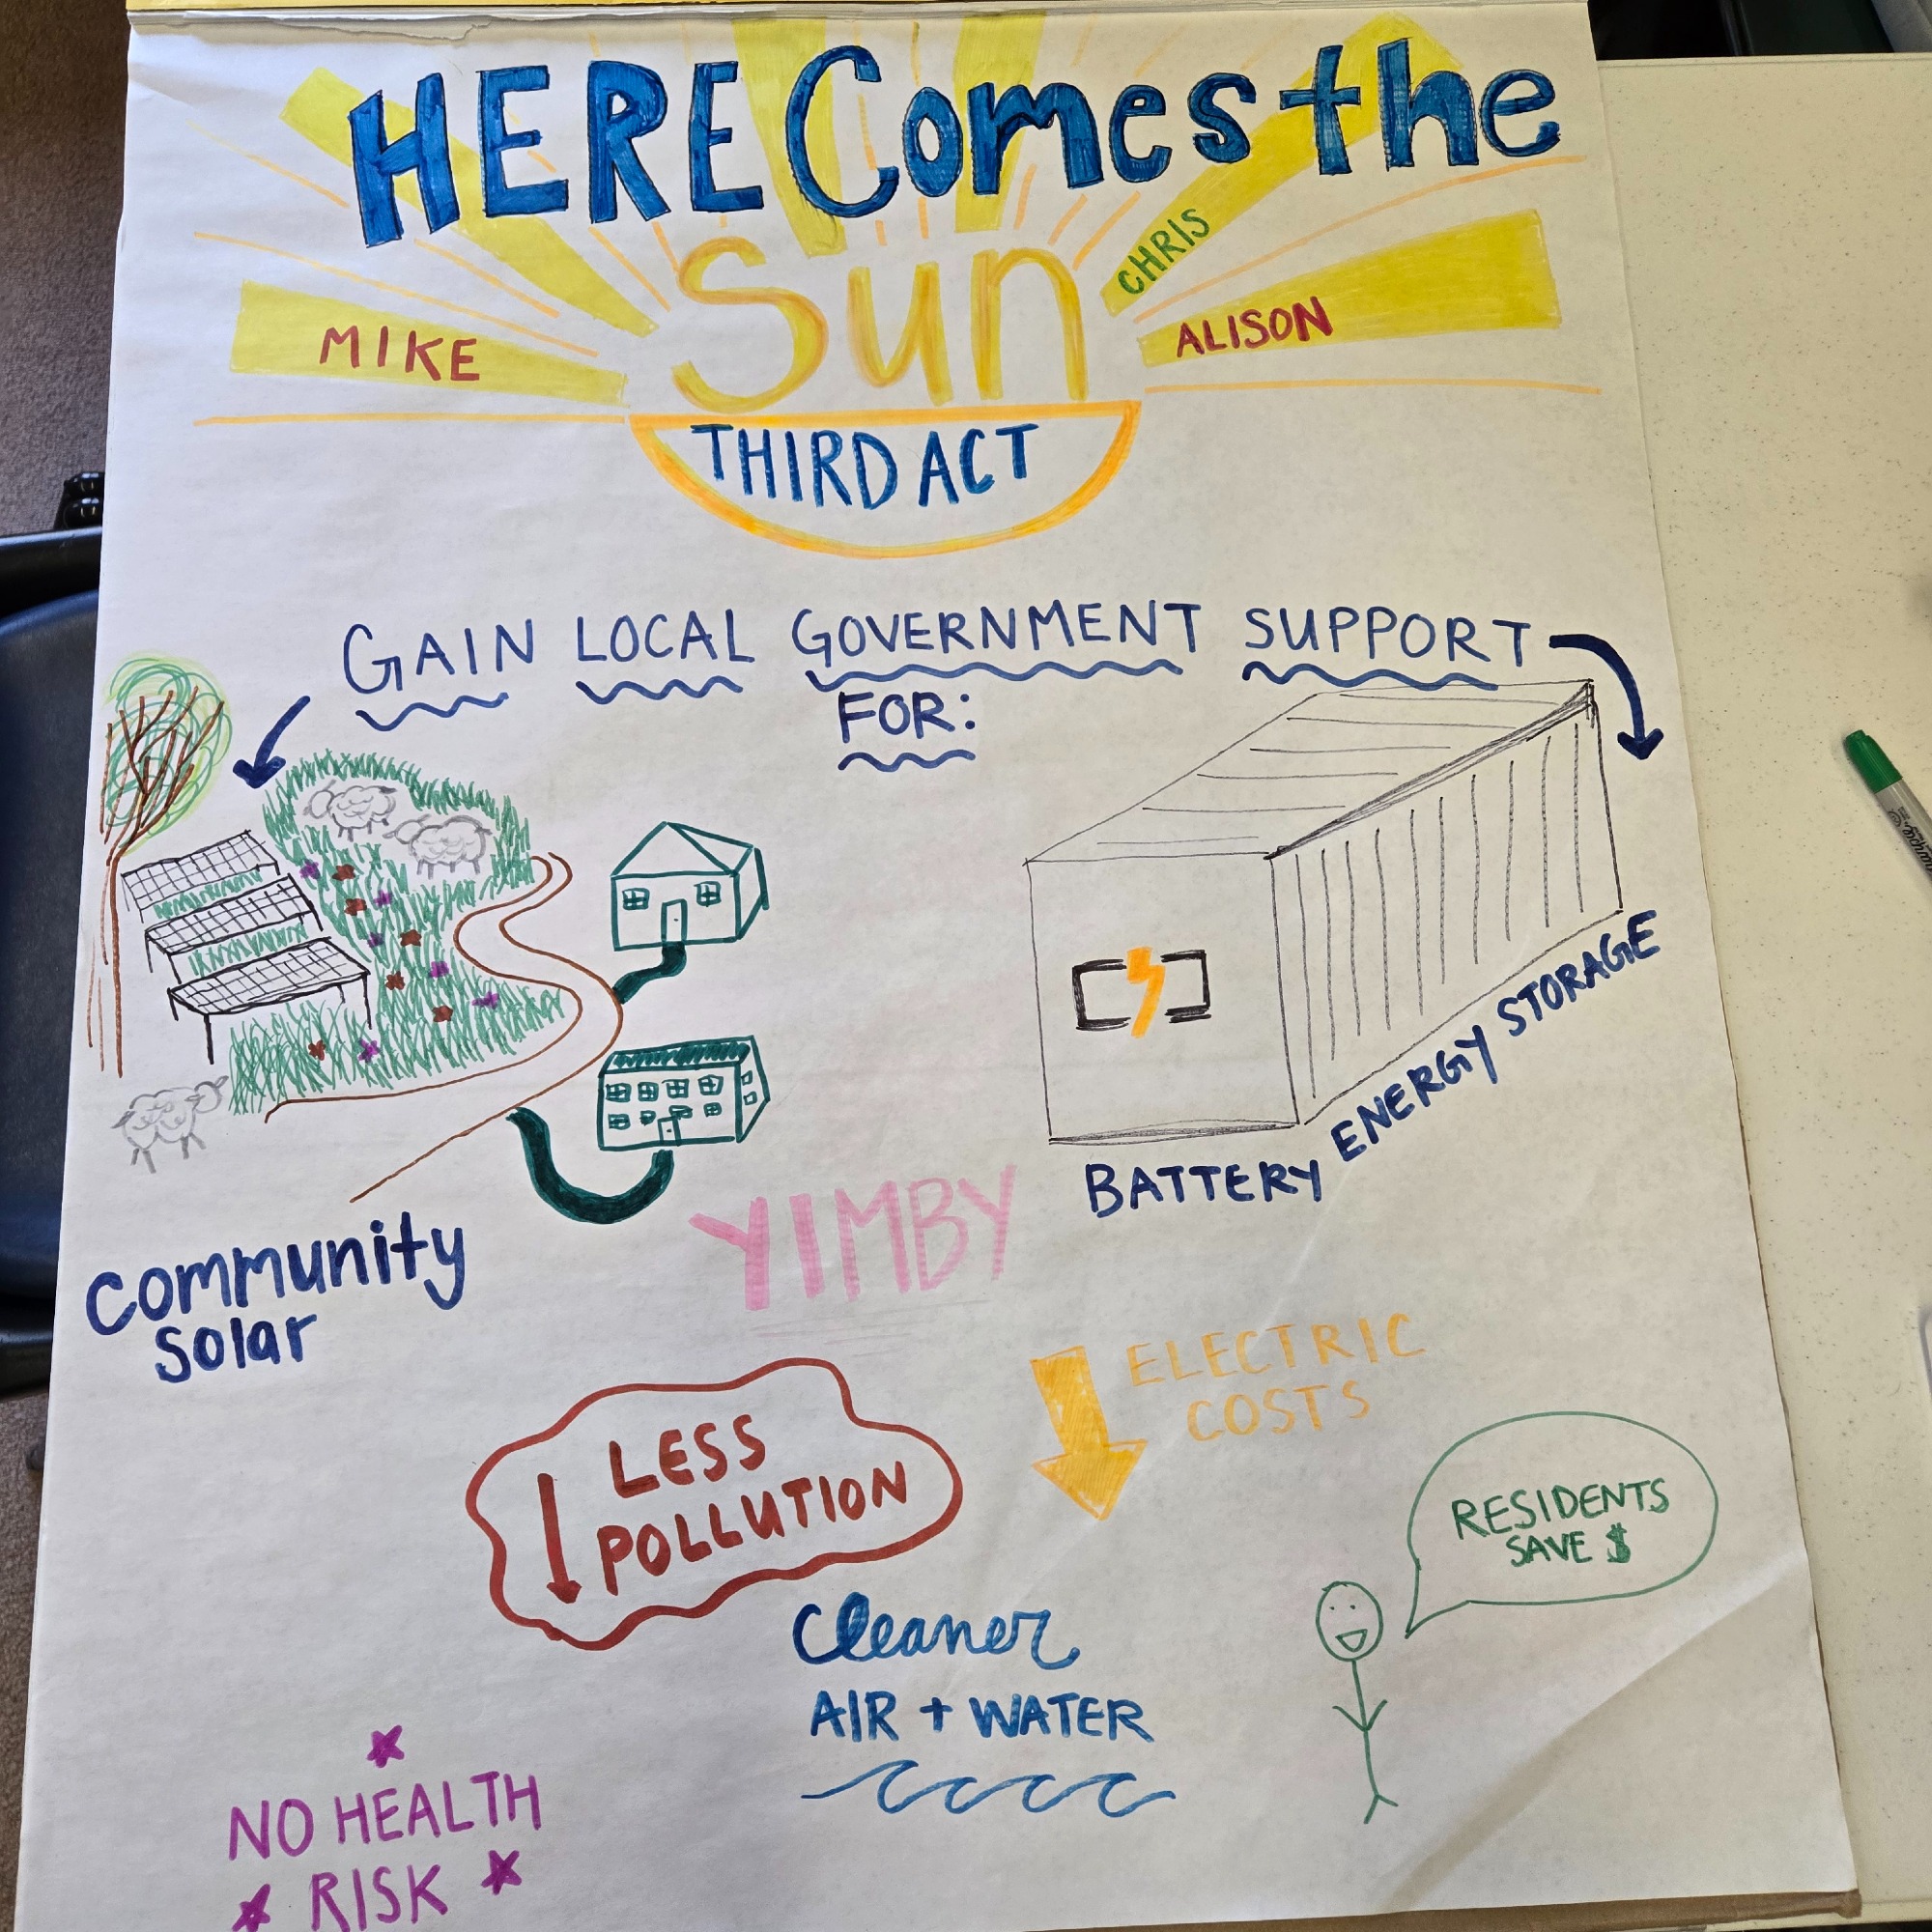 HERE Comes the
Sun
CHRIS
MIKE
ALISON
THIRD ACT
GAIN LOCAL GOVERNMENT SUPPORT
FOR:
BATTERY ENERGY STORAGE
Community
Solar
YIMBY
ELECTRIC
COSTS
LESS
POLLUTION
RESIDENTS
SAVE $
Cleaner
AIR + WATER
NO HEALTH
RISK
Sharpie